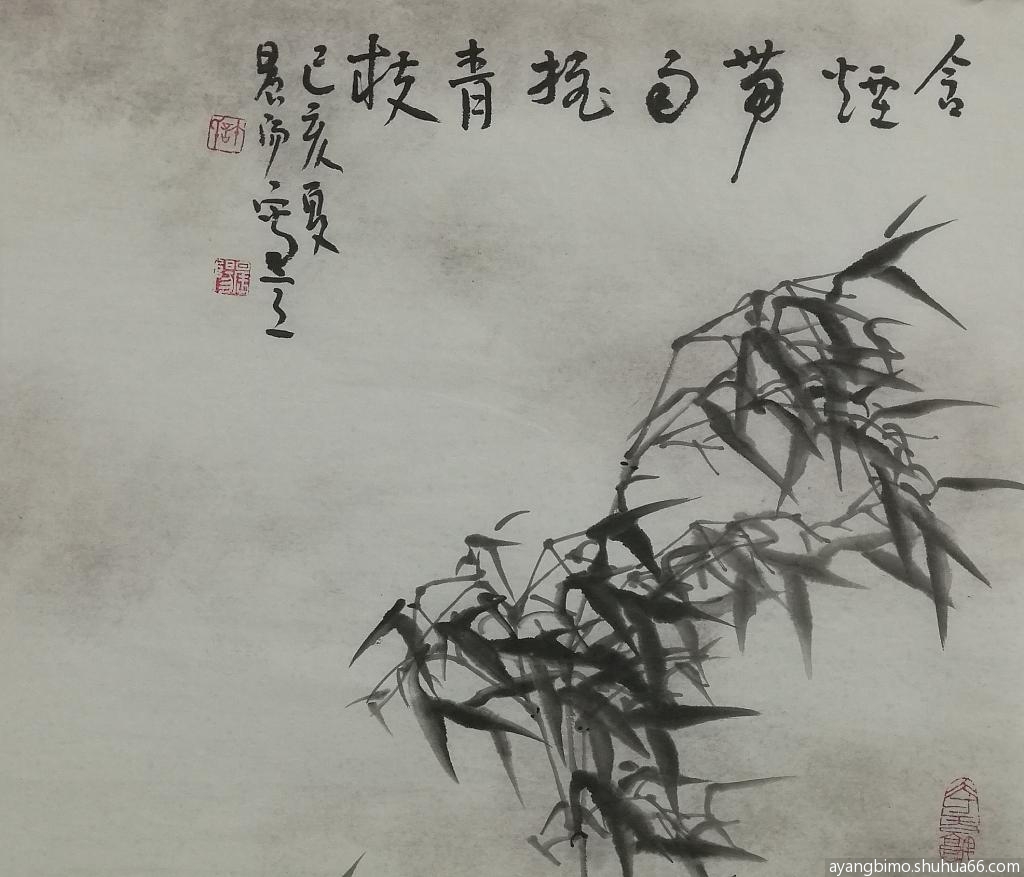 含煙帶雨拖青枝
己亥夏
晨阳寫意
ayangbimo.shuhua66.com